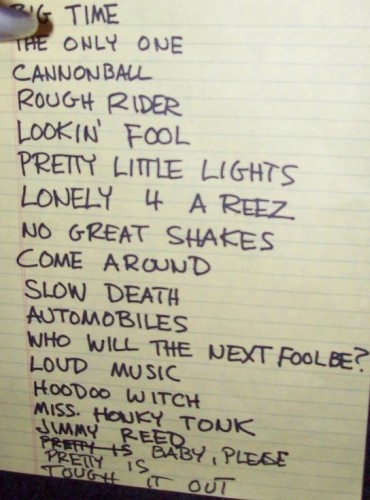 BIG TIME
THE ONLY ONE
CANNONBALL
ROUGH RIDER
LOOKIN' FOOL
PRETTY LITTLE LIGHTS
LONELY 4 A REEZ
NO GREAT SHAKES
COME AROUND
SLOW DEATH
AUTOMOBILES
WHO WILL THE NEXT FOOL BE?
LOUD MUSIC
HOODOO WITCH
MISS. HONKY TONK
JIMMY REED
PRETTY IS BABY, PLEASE
PRETTY IS
TOUGH IT OUT